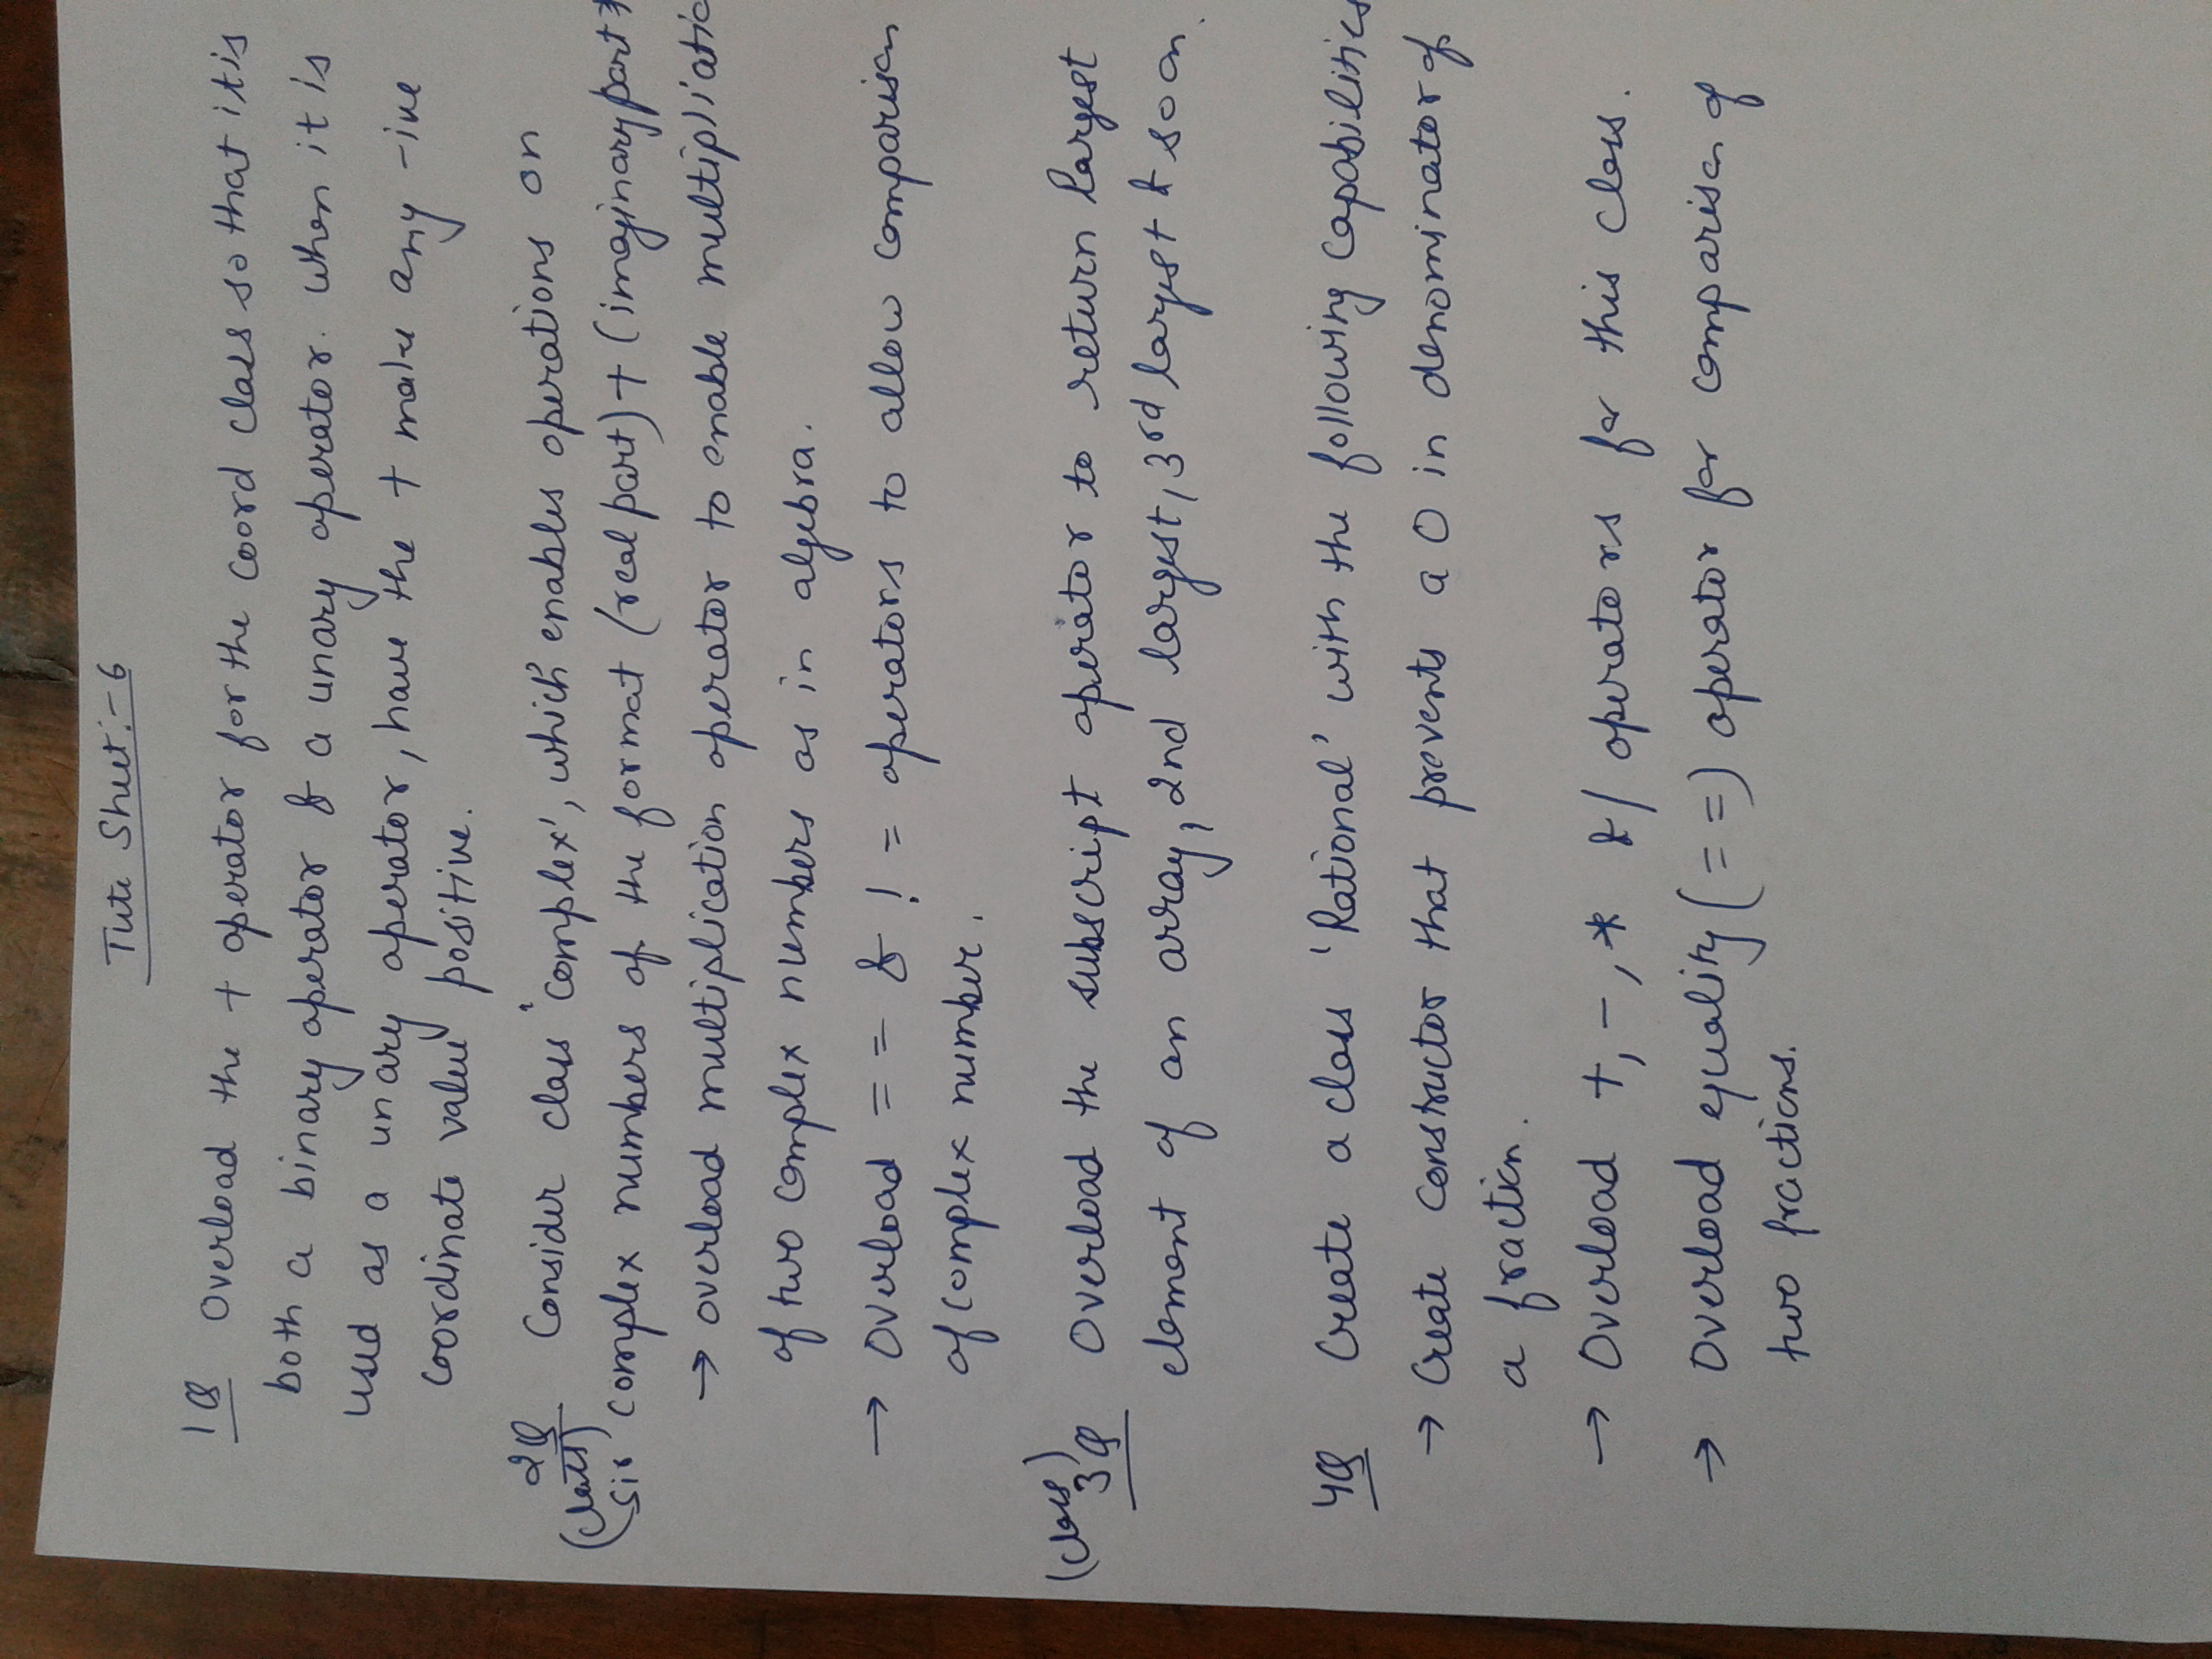 Tute Sheet:-6
1Q Overload the + operator for the coord class so that it is
both a binary operator & a unary operator. when it is
used as a unary operator, have the + make any -ive
coordinate value positive.
2Q Consider class 'complex', which enables operations on
complex numbers of the format (real part) + (imaginary part *
→ overload multiplication operator to enable multipliatio
of two complex numbers as in algebra.
→ Overload == & != operators to allow comparison
of complex number.
(class)
3Q Overload the subscript operator to return largest
element of an array, 2nd largest, 3rd largest & so on.
4Q Create a class 'Rational' with the following capabilities
→ Create constructor that prevents a 0 in denominator of
a fraction.
→ Overload +, -, * & / operators for this class.
→ Overload equality (==) operator for comparison of
two fractions.